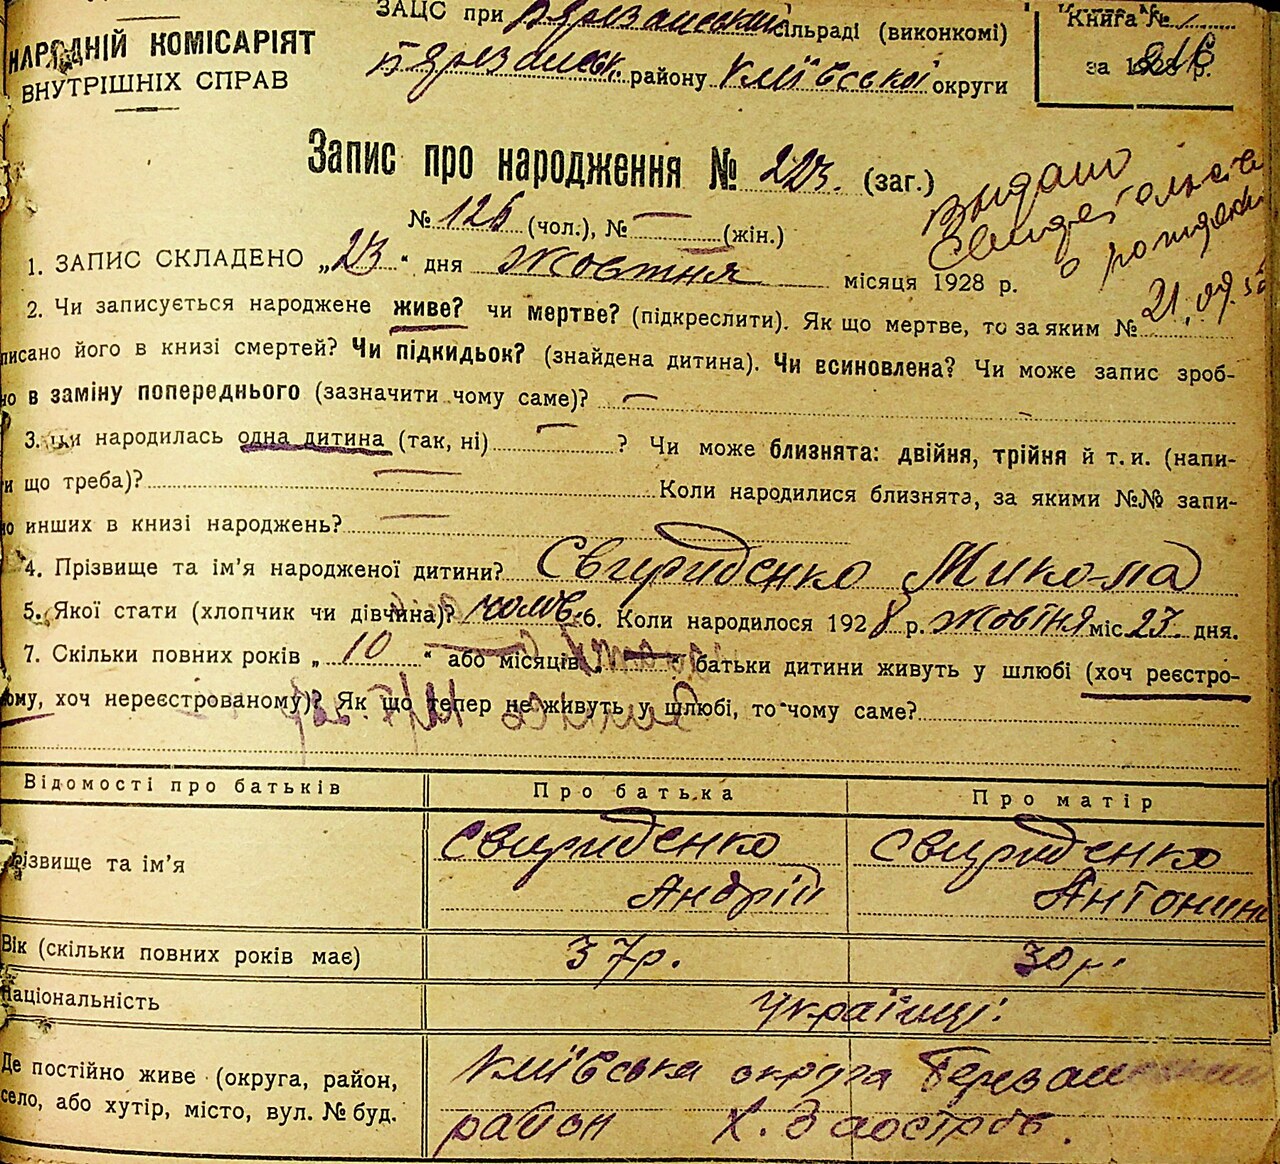 НАРОДНІЙ КОМІСАРІЯТ
ВНУТРІШНІХ СПРАВ
ЗАЦС при Березанський сільраді (виконкомі)
Березанськ. району Київської округи
Книга № 1
за 1928 р.
Запис про народження № 223. (заг.)
№ 126 (чол.), № — (жін.)
Выдано
свидетельств
о рожден
21.09.
1. ЗАПИС СКЛАДЕНО „23“ дня Жовтня місяця 1928 р.
2. Чи записується народжене живе? чи мертве? (підкреслити). Як що мертве, то за яким №
писано його в книзі смертей? Чи підкидьок? (знайдена дитина). Чи всиновлена? Чи може запис зроб-
но в заміну попереднього (зазначити чому саме)? —
3. Чи народилась одна дитина (так, ні) — ? Чи може близнята: двійня, трійня й т. и. (напи-
и що треба)? — Коли народилися близнята, за якими №№ запи-
но инших в книзі народжень? —
4. Прізвище та ім'я народженої дитини? Свириденко Микола
5. Якої стати (хлопчик чи дівчина)? чолов. 6. Коли народилося 1928 р. жовтня міс. 23 дня.
7. Скільки повних років „10“ або місяців „—“ батьки дитини живуть у шлюбі (хоч реєстро-
ому, хоч нереєстрованому)? Як що тепер не живуть у шлюбі, то чому саме?
Відомості про батьків Про батька Про матір
різвище та ім'я Свириденко Андрій Свириденко Антонина
Вік (скільки повних років має) 37р. 30р.
Національність Українці
Де постійно живе (округа, район, Київська округа Березан
село, або хутір, місто, вул. № буд. район Х. Заострів.